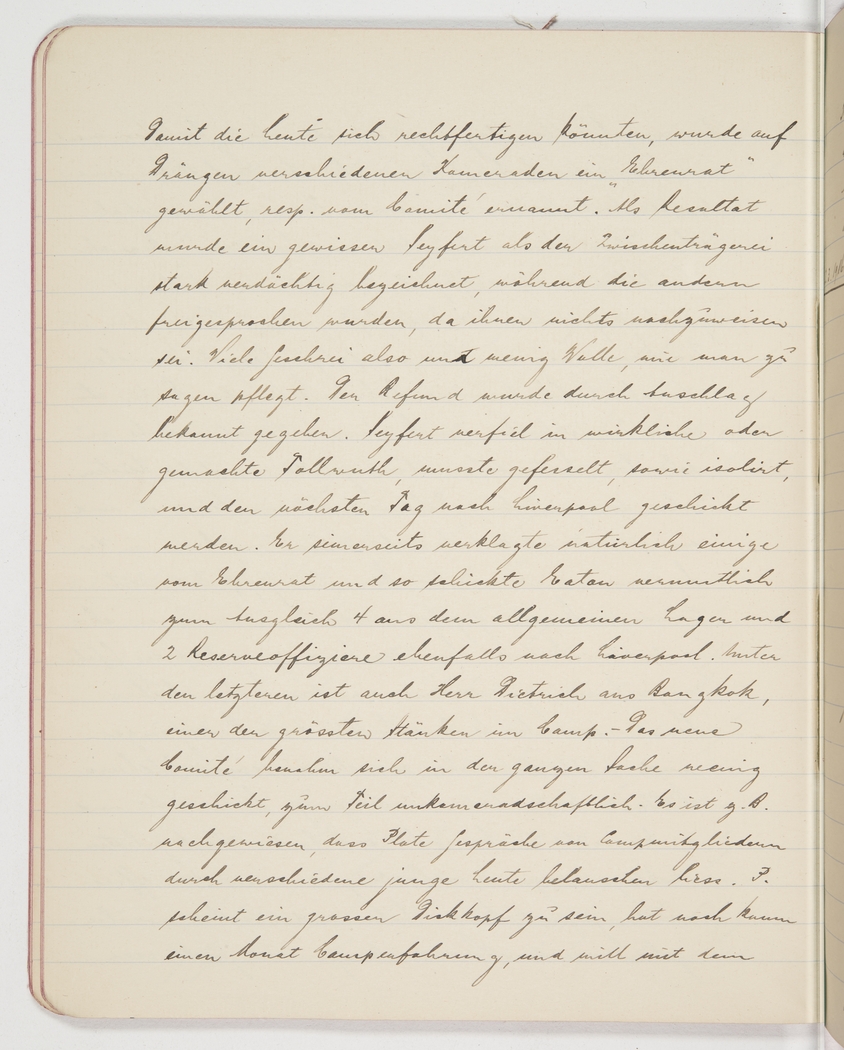 Damit die Leute sich rechtfertigen könnten, wurde auf
Drängen verschiedener Kameraden ein "Ehrenrat"
gewählt, resp. vom Comité ernannt. Als Resultat
wurde ein gewisser Seyfert als der Zwischenträgerei
stark verdächtig bezeichnet, während die andern
freigesprochen wurden, da ihnen nichts nachzuweisen
sei. Viele Geschrei also und wenig Wolle, wie man zu
sagen pflegt. Der Befund wurde durch Anschlag
bekannt gegeben. Seyfert verfiel in wirkliche oder
gemachte Tollwuth, musste gefesselt, sowie isolirt,
und den nächsten Tag nach Liverpool geschickt
werden. Er seinerseits verklagte natürlich einige
vom Ehrenrat und so schickte Eaton vermutlich
zum Ausgleich 4 aus dem allgemeinen Lager und
2 Reserveoffiziere ebenfalls nach Liverpool. Unter
den letzteren ist auch Herr Dietrich aus Bangkok,
einer der grössten Stänker im Camp. - Das neue
Comité benahm sich in der ganzen Sache wenig
geschickt, zum Teil unkameradschaftlich. Es ist z.B.
nachgewiesen, dass Plate Gespräche von Campmitgliedern
durch verschiedene junge Leute belauschen liess. P.
scheint ein grosser Dickkopf zu sein, hat noch kaum
einen Monat Camperfahrung, und will mit dem